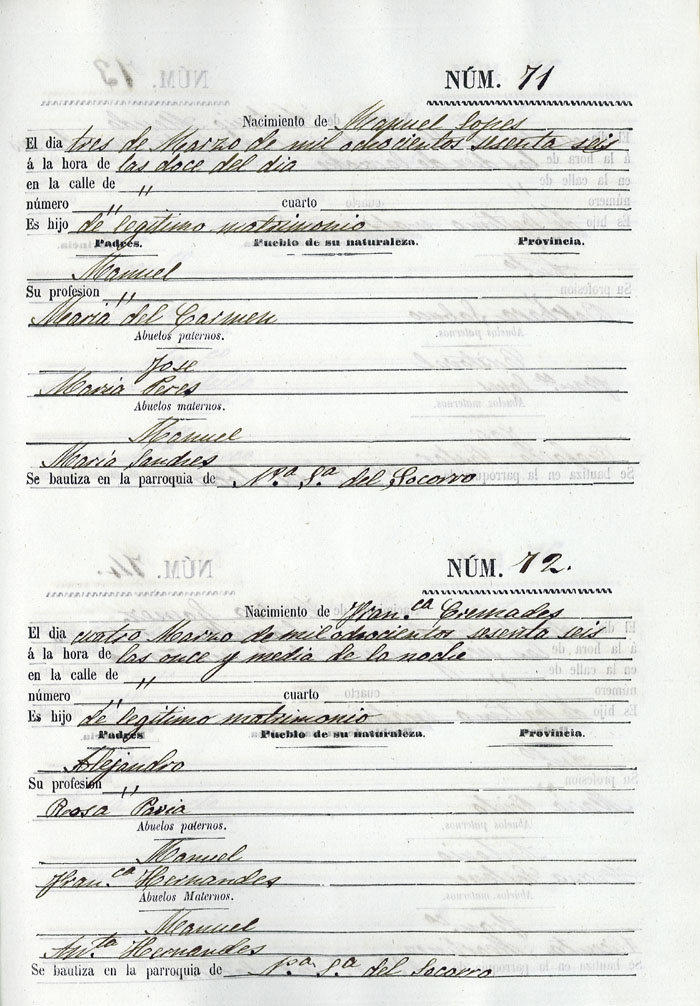 NÚM. 71
Nacimiento de Manuel Lopes
El dia tres de Marzo de mil ochocientos sesenta seis
á la hora de las doce del dia
en la calle de "
número " cuarto
Es hijo de legitimo matrimonio
Padres. Pueblo de su naturaleza. Provincia.
Manuel
Su profesion "
Maria del Carmen
Abuelos paternos.
Jose
Maria Peres
Abuelos maternos.
Manuel
Maria Sandres
Se bautiza en la parroquia de N.ª S.ª del Socorro
NÚM. 72.
Nacimiento de Fran.ca Cremades
El dia cuatro Marzo de mil ochocientos sesenta seis
á la hora de las once y media de la noche
en la calle de "
número cuarto
Es hijo de legitimo matrimonio
Padres Pueblo de su naturaleza. Provincia.
Alejandro
Su profesion "
Rosa Pavia
Abuelos paternos.
Manuel
Fran.ca Hernandes
Abuelos Maternos.
Manuel
An.ta Hernandes
Se bautiza en la parroquia de N.ª S.ª del Socorro